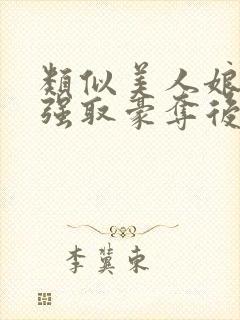 類似美人娘
强取豪奪後
李冀東